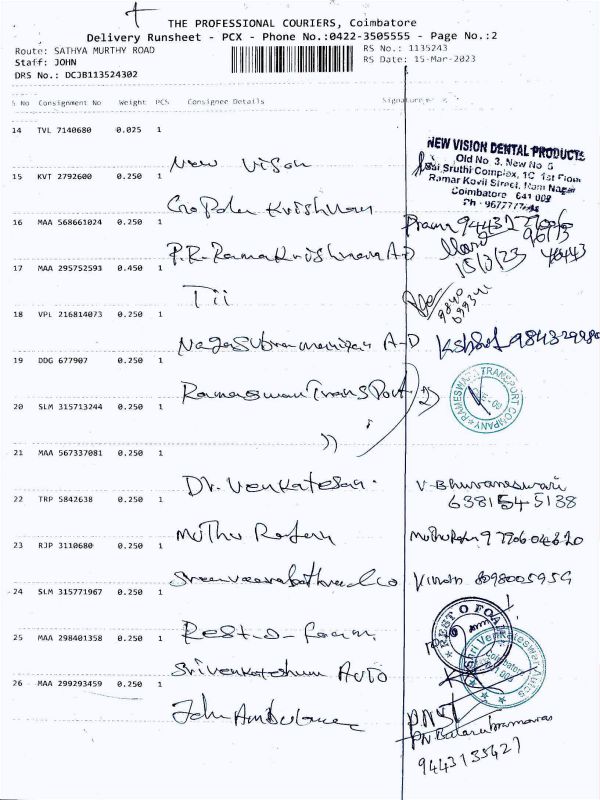 THE PROFESSIONAL COURIERS, Coimbatore
Delivery Runsheet - PCX - Phone No.:0422-3505555 - Page No.:2
Route: SATHYA MURTHY ROAD RS No.: 1135243
Staff: JOHN RS Date: 15-Mar-2023
DRS No.: DCJB113524302
S No Consignment No Weight PCS Consignee Details Signature
14 TVL 7140680 0.025 1
New Vison
NEW VISION DENTAL PRODUCTS
Old No 3, New No 5
Sai Sruthi Complex, 1C 1st Floor
Ramar Kovil Street, Ram Nagar
Coimbatore 641 009
Ph - 9677777
15 KVT 2792600 0.250 1
Gopala Krishnan
16 MAA 568661024 0.250 1
P.R. RamaKrishnan A-D
15/3/23
17 MAA 295752593 0.450 1
Tii
9840
18 VPL 216814073 0.250 1
Nagasubramaniyan A-D
19 DDG 677907 0.250 1
Ramaswari TransPort
RAMESWARA TRANSPORT COMPANY
20 SLM 315713244 0.250 1
21 MAA 567337081 0.250 1
Dr. Venkatesan. V-Bhuvaneswari
6381545138
22 TRP 5842638 0.250 1
Muthu
23 RJP 3110680 0.250 1
8098005959
24 SLM 315771967 0.250 1
Rest-o-foam
REST O FOAM
25 MAA 298401358 0.250 1
Srivenkateshwara Auto
Coimbatore
26 MAA 299293459 0.250 1
John Ambulance
PN Balasubramanian
9443135421